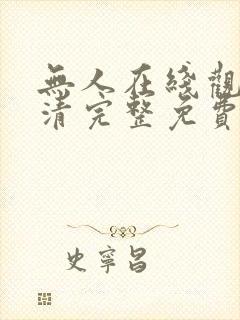 無人在綫觀
清完整免費
史寧昌